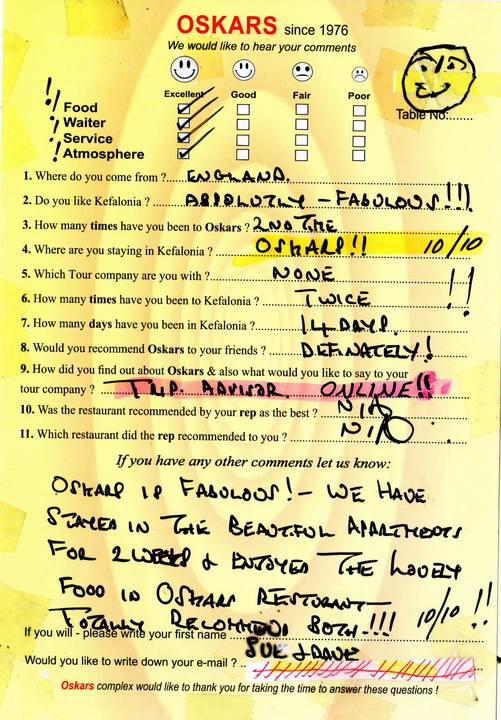 OSKARS since 1976
We would like to hear your comments
Excellent Good Fair Poor
Table No:......
! Food
! Waiter
! Service
! Atmosphere
1. Where do you come from ? ENGLAND.
2. Do you like Kefalonia ? ABSOLUTLY - FABULOUS!!!
3. How many times have you been to Oskars ? 2ND TIME
4. Where are you staying in Kefalonia ? OSKARS!! 10/10
5. Which Tour company are you with ? NONE !!
6. How many times have you been to Kefalonia ? TWICE
7. How many days have you been in Kefalonia ? 14 DAYS.
8. Would you recommend Oskars to your friends ? DEFINATELY!
9. How did you find out about Oskars & also what would you like to say to your
tour company ? TRIP ADVISOR. ONLINE!!
10. Was the restaurant recommended by your rep as the best ? N/A
11. Which restaurant did the rep recommended to you ? N/A
If you have any other comments let us know:
OSKARS IS FABULOUS! - WE HAVE
STAYED IN THE BEAUTIFUL APARTMENTS
FOR 2 WEEKS & ENJOYED THE LOVELY
FOOD IN OSKARS RESTURANT
TOTALLY RECOMMEND BOTH!!! 10/10 !!
If you will - please write your first name
SUE & DAVE
Would you like to write down your e-mail ?
Oskars complex would like to thank you for taking the time to answer these questions !